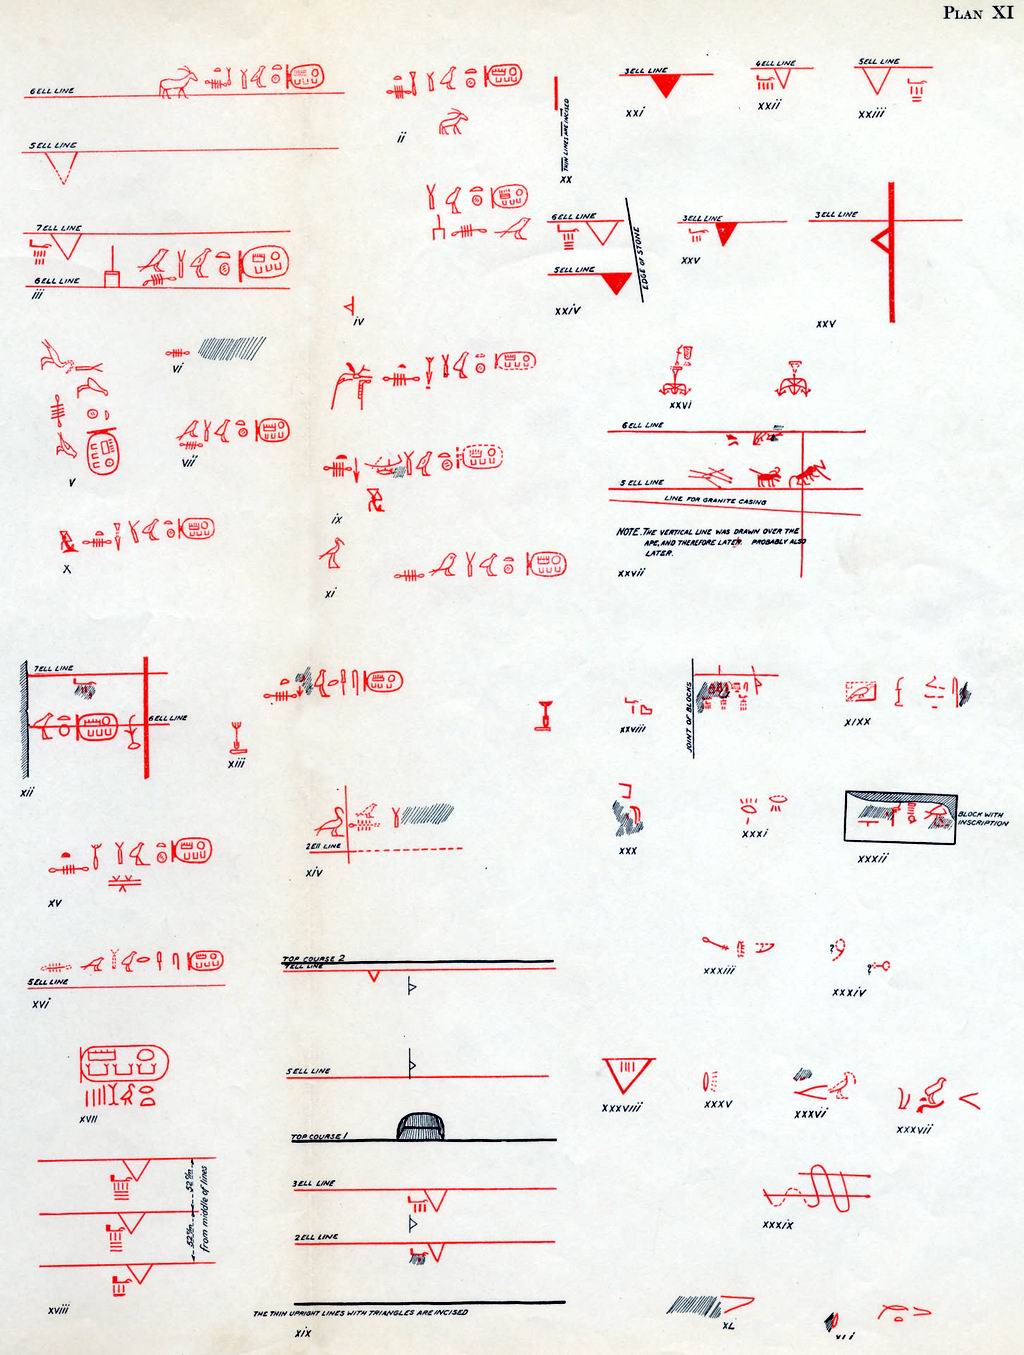 PLAN XI
6 ELL LINE
5 ELL LINE
ii
3 ELL LINE
xxi
4 ELL LINE
xxii
5 ELL LINE
xxiii
THIN LINES ARE INCISED
xx
7 ELL LINE
6 ELL LINE
iii
iv
6 ELL LINE
5 ELL LINE
EDGE OF STONE
xxiv
3 ELL LINE
xxv
3 ELL LINE
xxv
v
vi
vii
ix
x
xi
xxvi
6 ELL LINE
5 ELL LINE
LINE FOR GRANITE CASING
NOTE. THE VERTICAL LINE WAS DRAWN OVER THE
APE, AND THEREFORE LATER PROBABLY ALSO
LATER.
xxvii
7 ELL LINE
6 ELL LINE
xii
xiii
xxviii
JOINT OF BLOCKS
xixx
2 Ell LINE
xiv
xxx
xxxi
BLOCK WITH
INSCRIPTION
xxxii
xv
5 ELL LINE
xvi
TOP COURSE 2
7 ELL LINE
xxxiii
?
?
xxxiv
xvii
5 ELL LINE
TOP COURSE 1
xxxviii
xxxv
xxxvi
xxxvii
52 cm
52 cm
from middle of lines
xviii
3 ELL LINE
2 ELL LINE
THE THIN UPRIGHT LINES WITH TRIANGLES ARE INCISED
xix
xxxix
XL